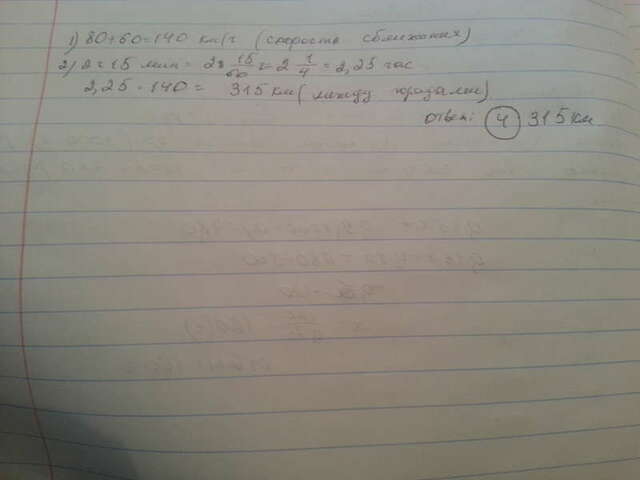 1) 80+60=140 км/ч (скорость сближения)
2) 2ч 15 мин = 2ч 15/60 = 2 1/4 = 2,25 час
2,25 · 140 = 315 км (между городами)
ответ: 4 315 км